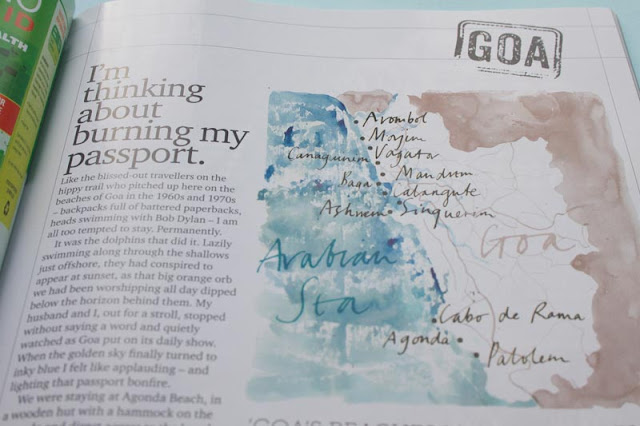 GOA
I'm
thinking
about
burning my
passport.
Like the blissed-out travellers on the
hippy trail who pitched up here on the
beaches of Goa in the 1960s and 1970s
– backpacks full of battered paperbacks,
heads swimming with Bob Dylan – I am
all too tempted to stay. Permanently.
It was the dolphins that did it. Lazily
swimming along through the shallows
just offshore, they had conspired to
appear at sunset, as that big orange orb
we had been worshipping all day dipped
below the horizon behind them. My
husband and I, out for a stroll, stopped
without saying a word and quietly
watched as Goa put on its daily show.
When the golden sky finally turned to
inky blue I felt like applauding – and
lighting that passport bonfire.
We were staying at Agonda Beach, in
a wooden hut with a hammock on the
Arombol
Morjem
Vagator
Mandrum
Baga
Calangute
Ashwem
Sinquerim
Goa
Arabian
Sea
Cabo de Rama
Agonda
Patolem